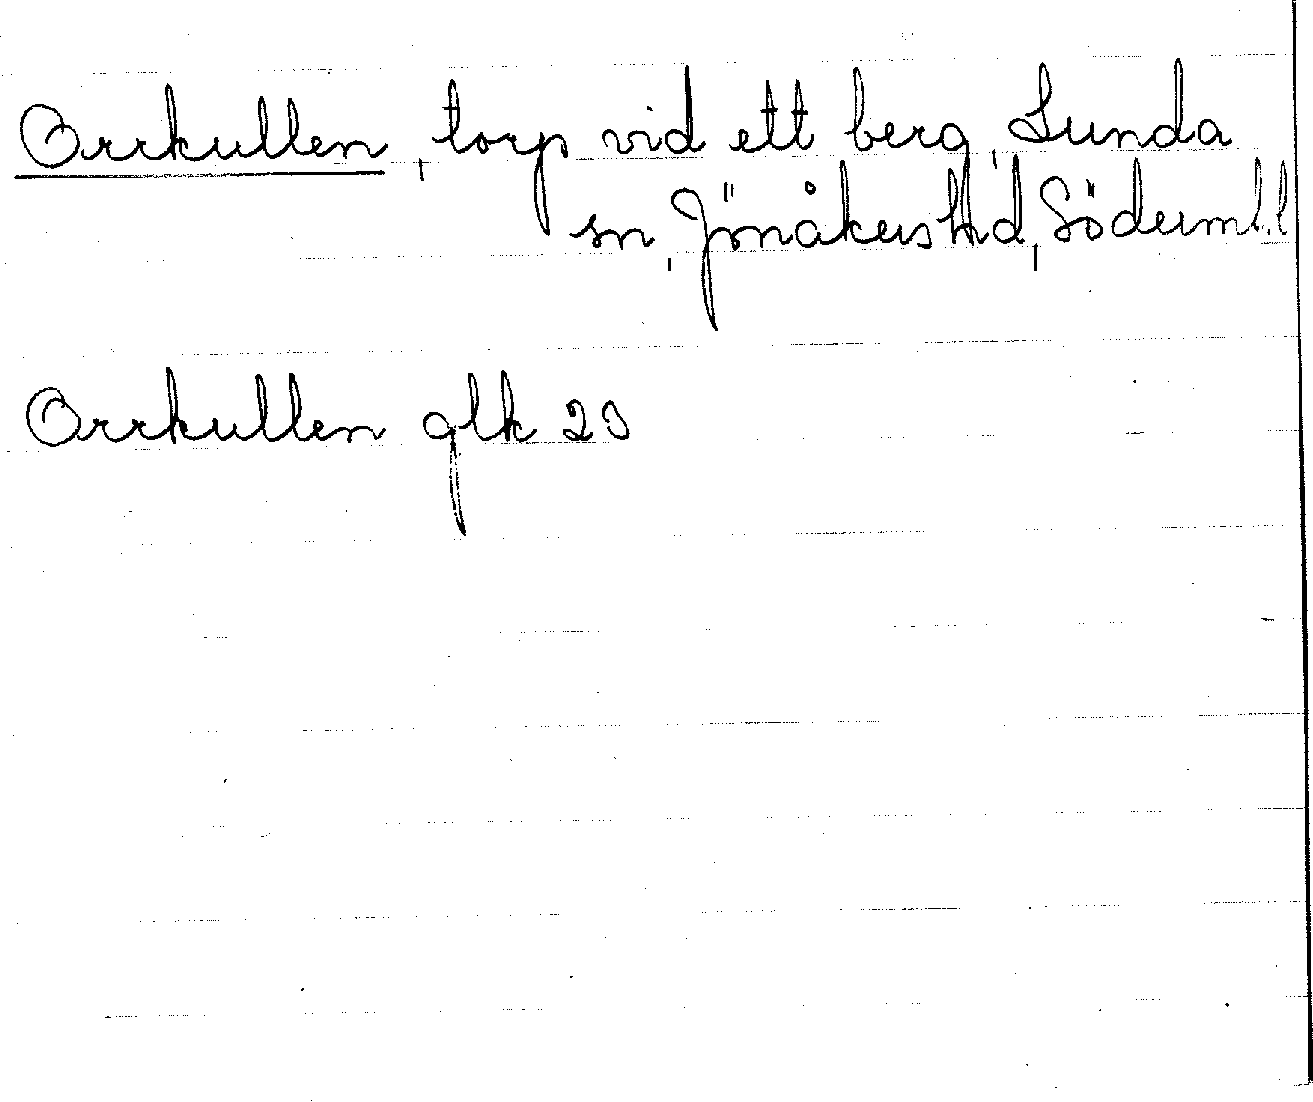 Orrkullen, torp vid ett berg, Lunda
sn, Jönåkers hd, Söderm.l.
Orrkullen glk 23